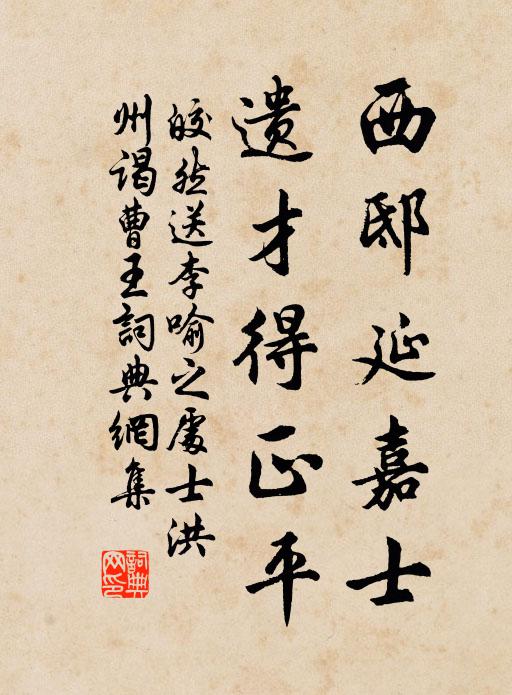 西邸延嘉士
遗才得正平
皎然送李喻之處士洪
州謁曹王詞典網集
詞典网印